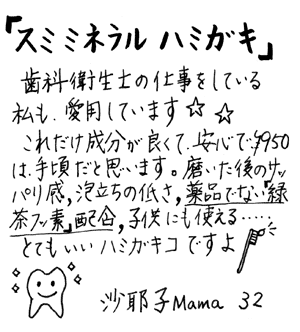 「スミミネラル ハミガキ」
歯科衛生士の仕事をしている
私も、愛用しています☆☆
これだけ成分が良くて、安心で、¥950
は、手頃だと思います。磨いた後のサッ
パリ感,泡立ちの低さ,薬品でない「緑
茶フッ素」配合,子供にも使える……
とてもいいハミガキコですよ
沙耶子Mama 32